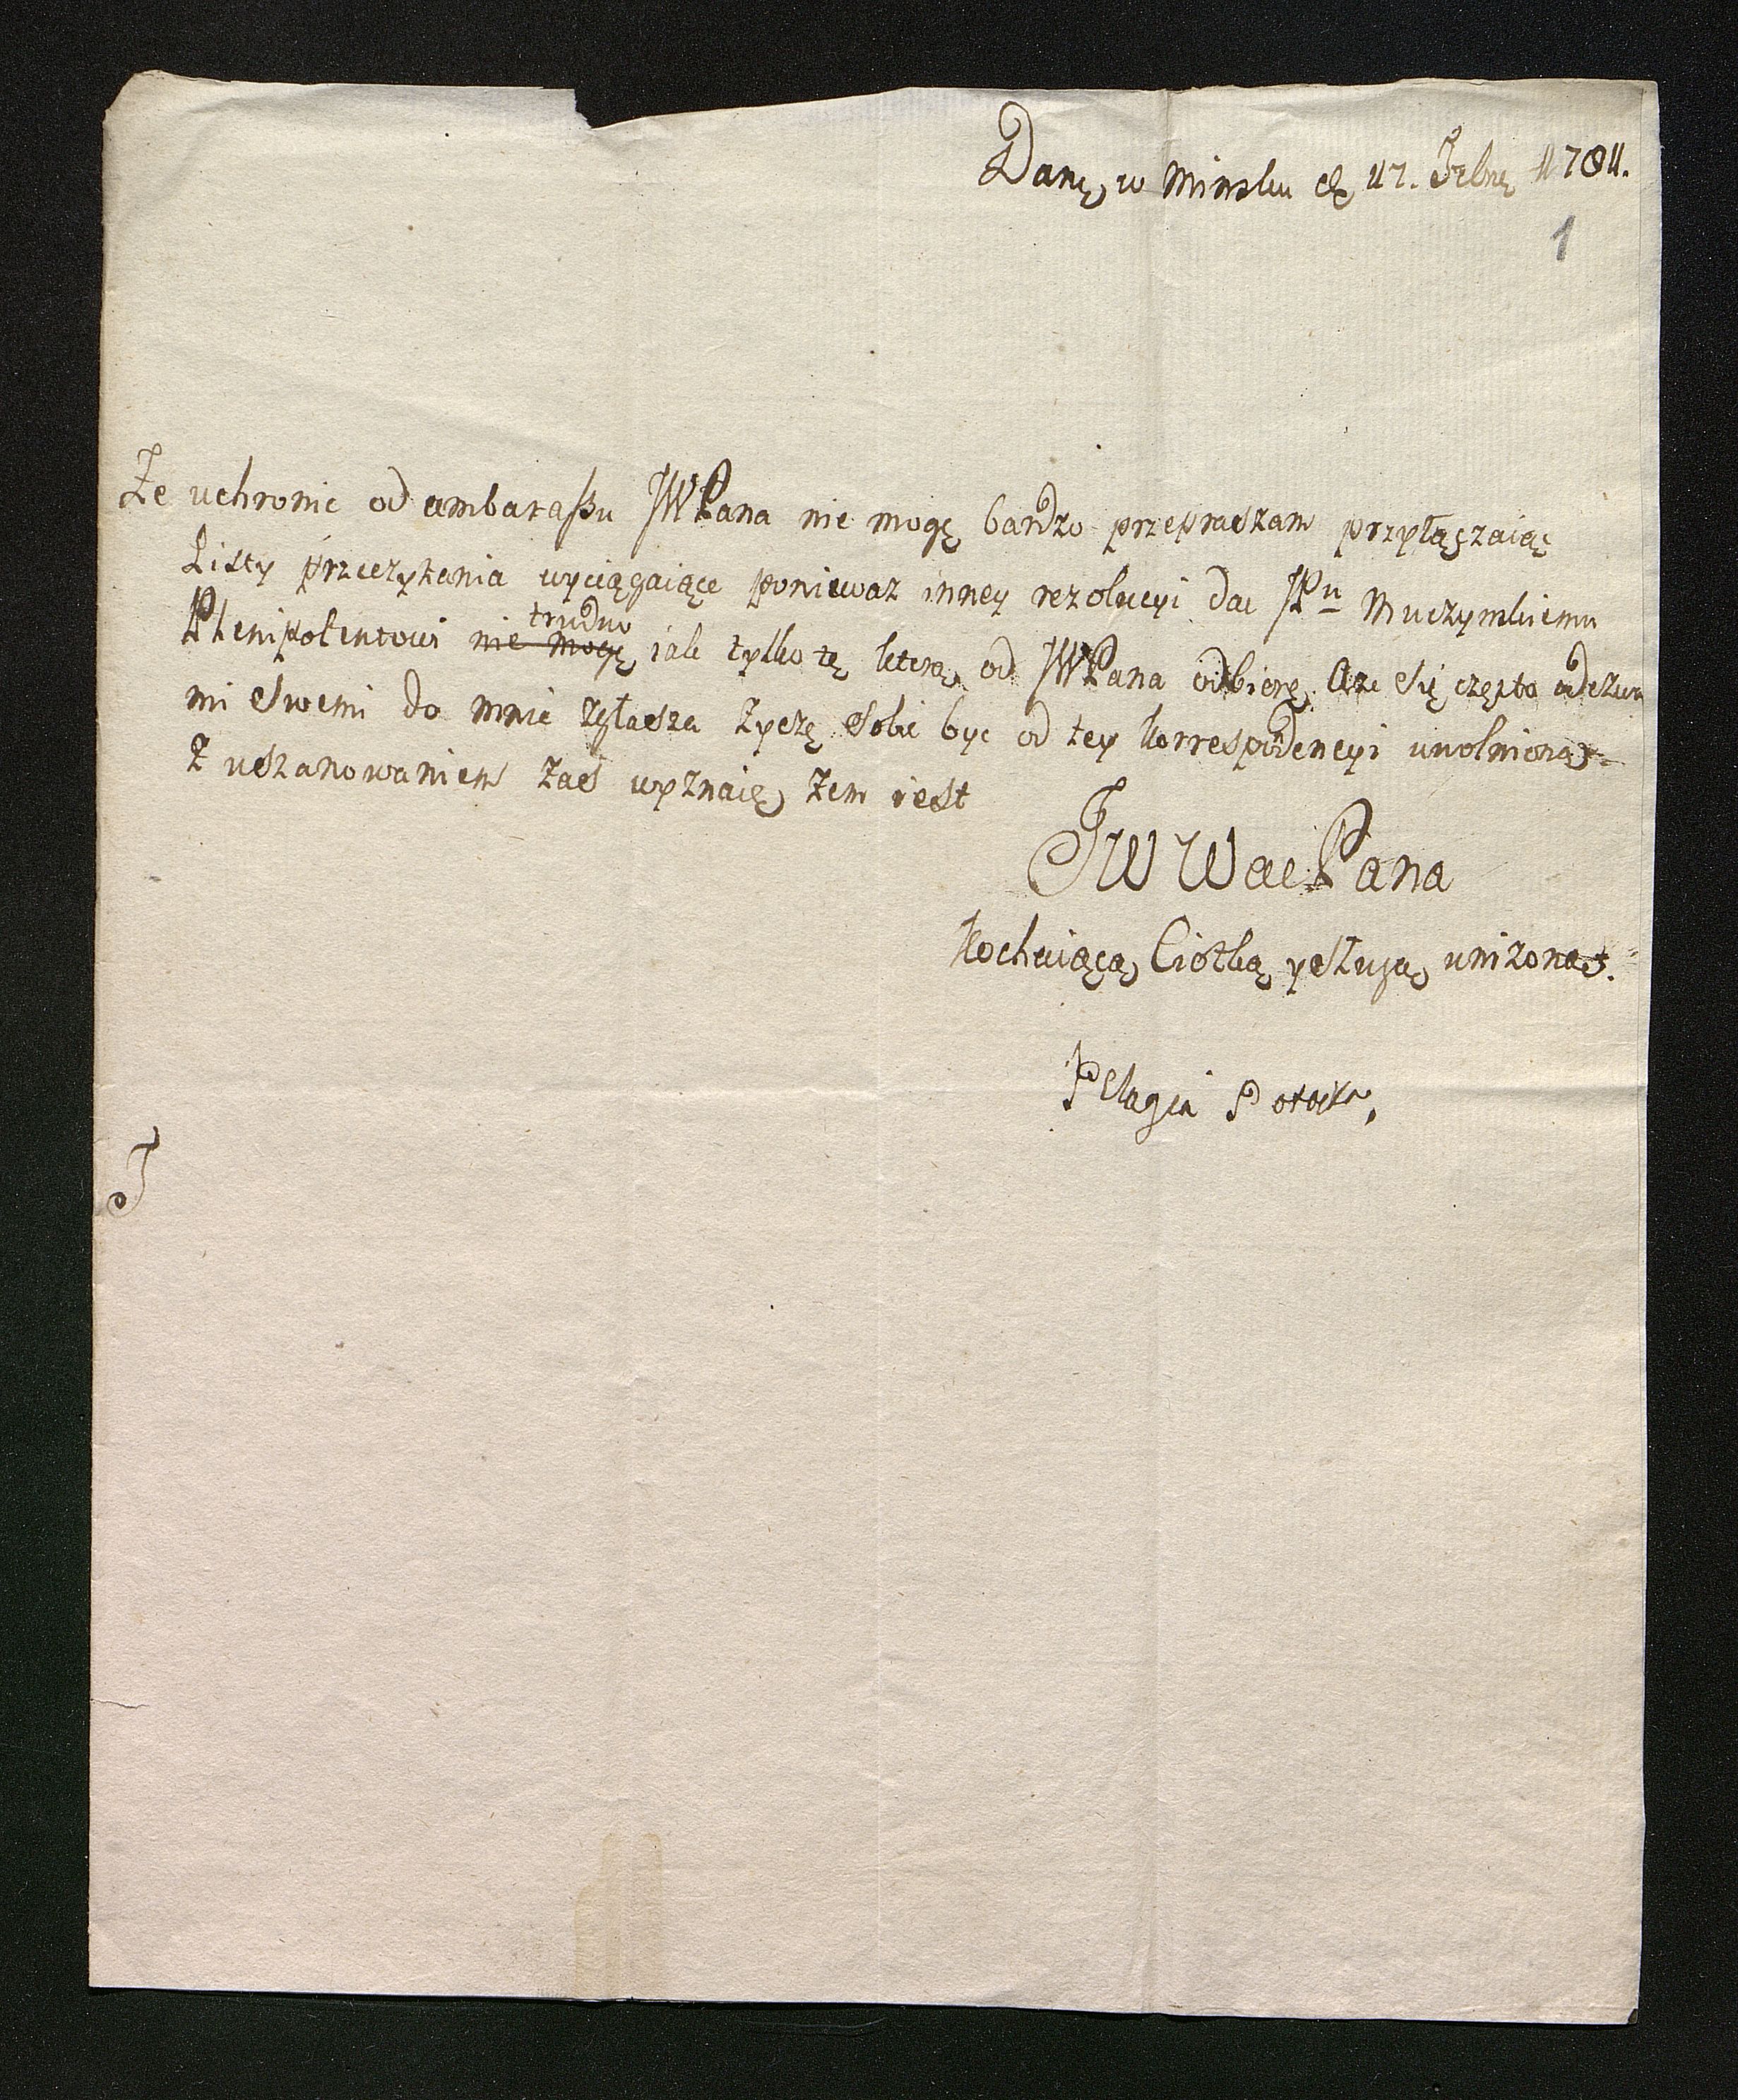 Dany w Minsku d 17. Febry 1781.
1
Że uchronic od ambarassu JWPana nie mogę bardzo przepraszam przyłączaiąc
Listy przeczytania wyciągaiące poniewaz inney rezolucyi dac JPu Muczynskiemu
Plenipotentowi nie mogę trudno iak tylko tę ktorą od JWPana odbiorę. A ze się często odezwa
mi swemi do mnie zgłasza zyczę sobie byc od tey korrespondencyi uwolnioną
Z uszanowaniem zas wyznaię zem iest
JW WacPana
Kochaiącą Ciotką y sługą unizoną.
Pelagia Potocka,
J